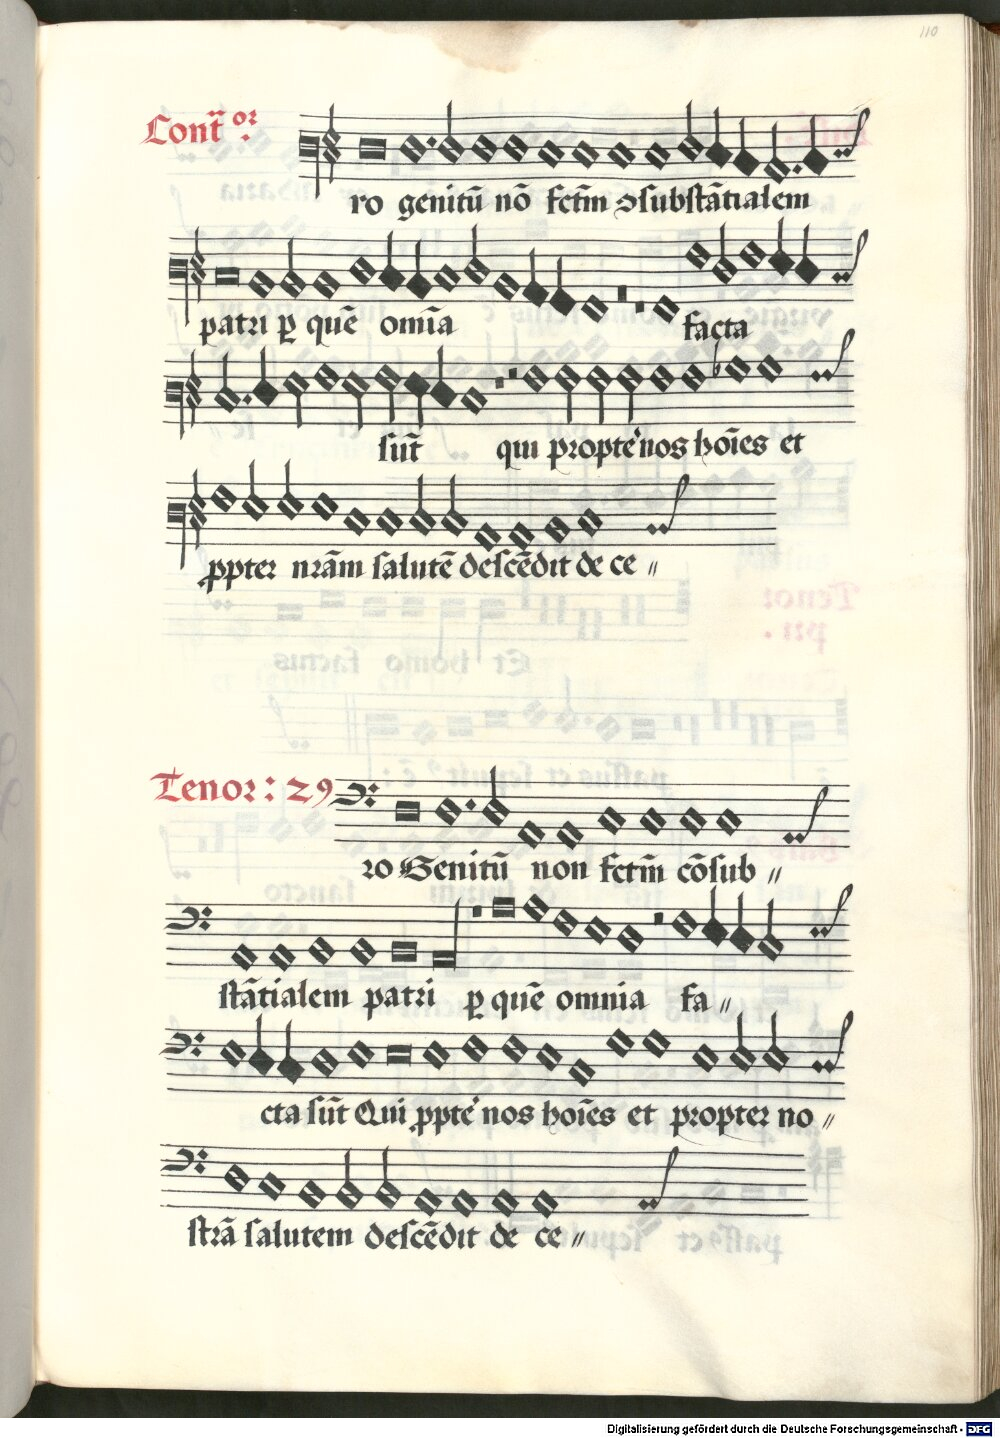 110
Contᵃ̄ or.
ro genitū nō fctm̄ ↄsubstātialem
patri ꝑ quē om̄ia facta
sūt qui propte' nos hoīes et
ꝓpter nrām salutē descēdit de ce〃
Tenor: 29
ro Genitū non fctm̄ cōsub〃
stātialem patri ꝑ quē omnia fa〃
cta sūt Qui ꝓpte' nos hoīes et propter no〃
strā salutem descēdit de ce〃
Digitalisierung gefördert durch die Deutsche Forschungsgemeinschaft - DFG